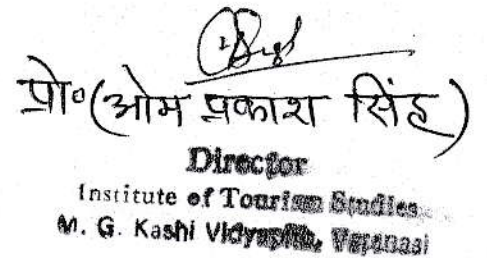 प्रो॰(ओम प्रकाश सिंह)
Director
Institute of Tourism Studies
M. G. Kashi Vidyapith, Varanasi